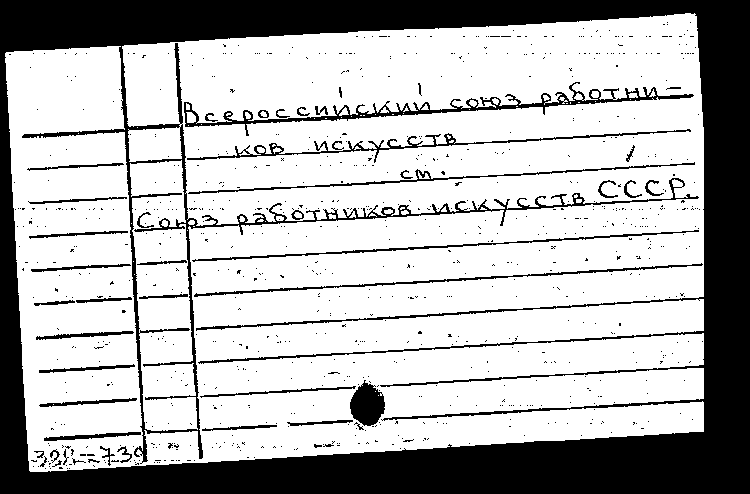 Всероссийский союз работни-
ков искусств
см.
Союз работников искусств СССР.